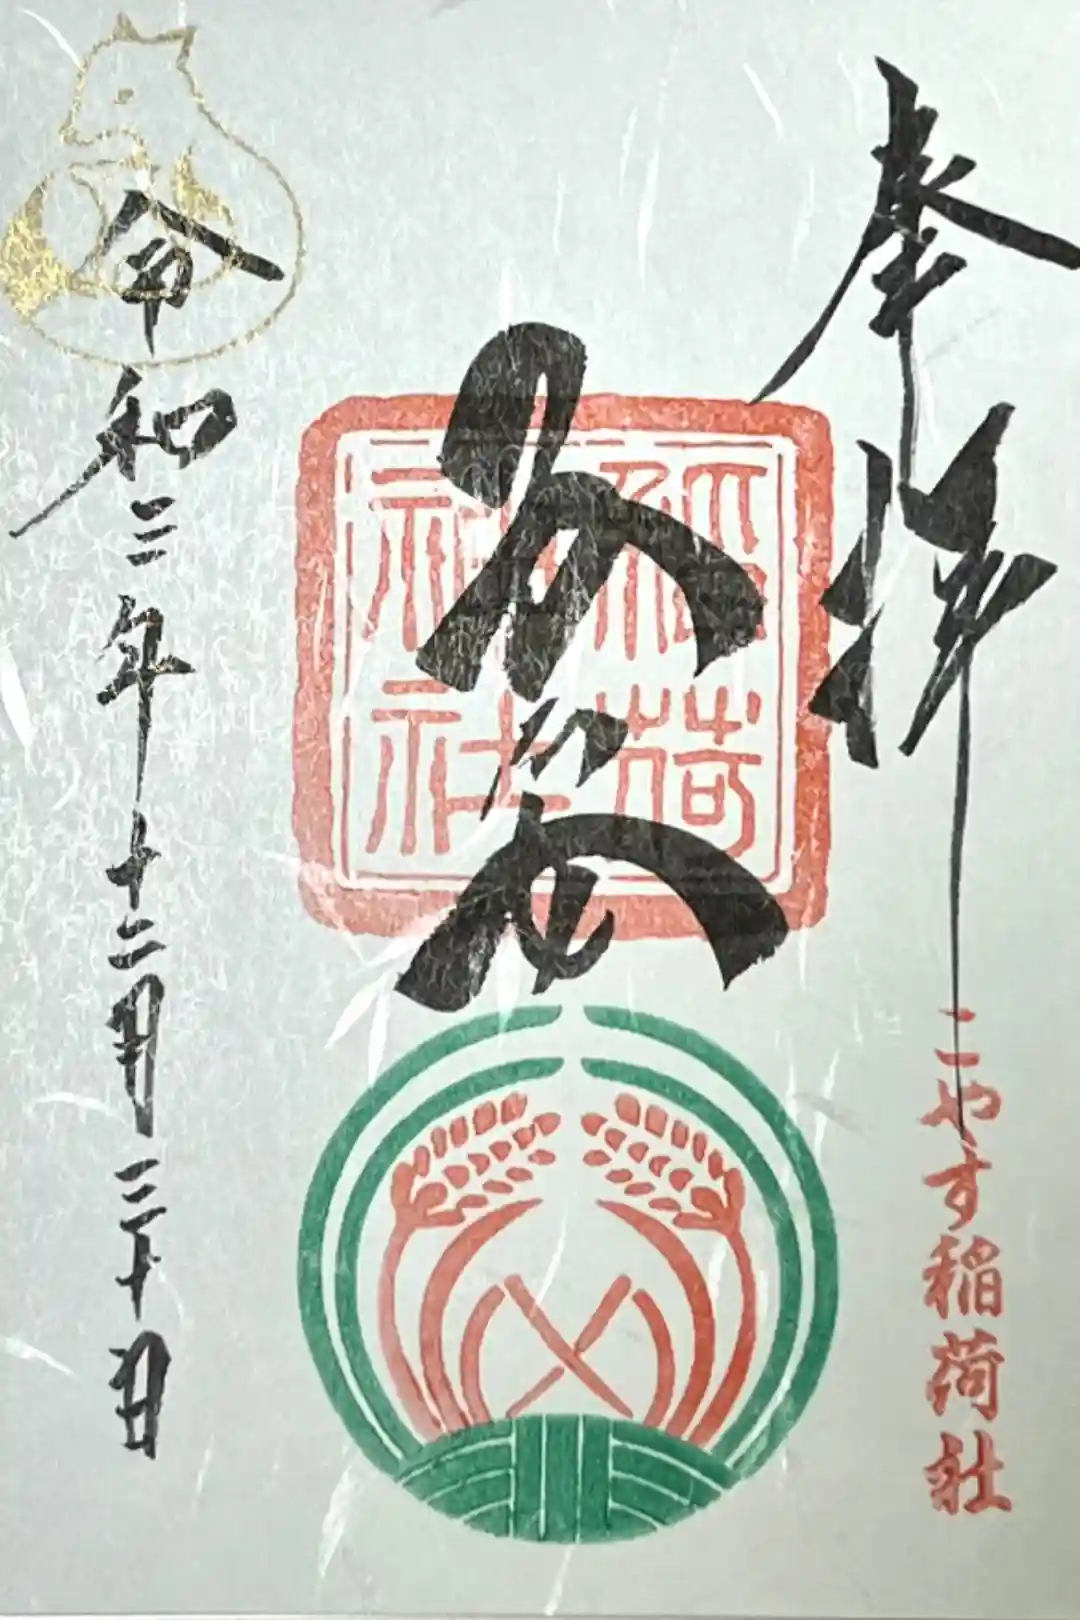 奉拝
こやす稲荷社
稲荷
神社
令和二年十二月三十日